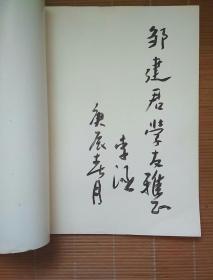 邹建君学友雅正
李涵
庚辰春月